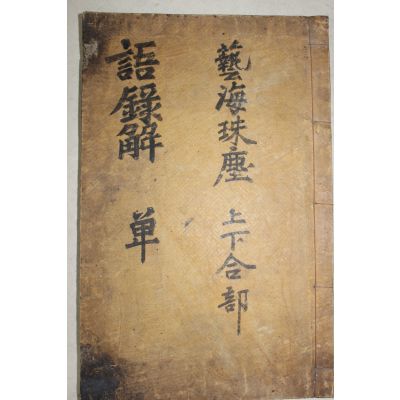 藝海珠塵 上下合部
語錄解 単